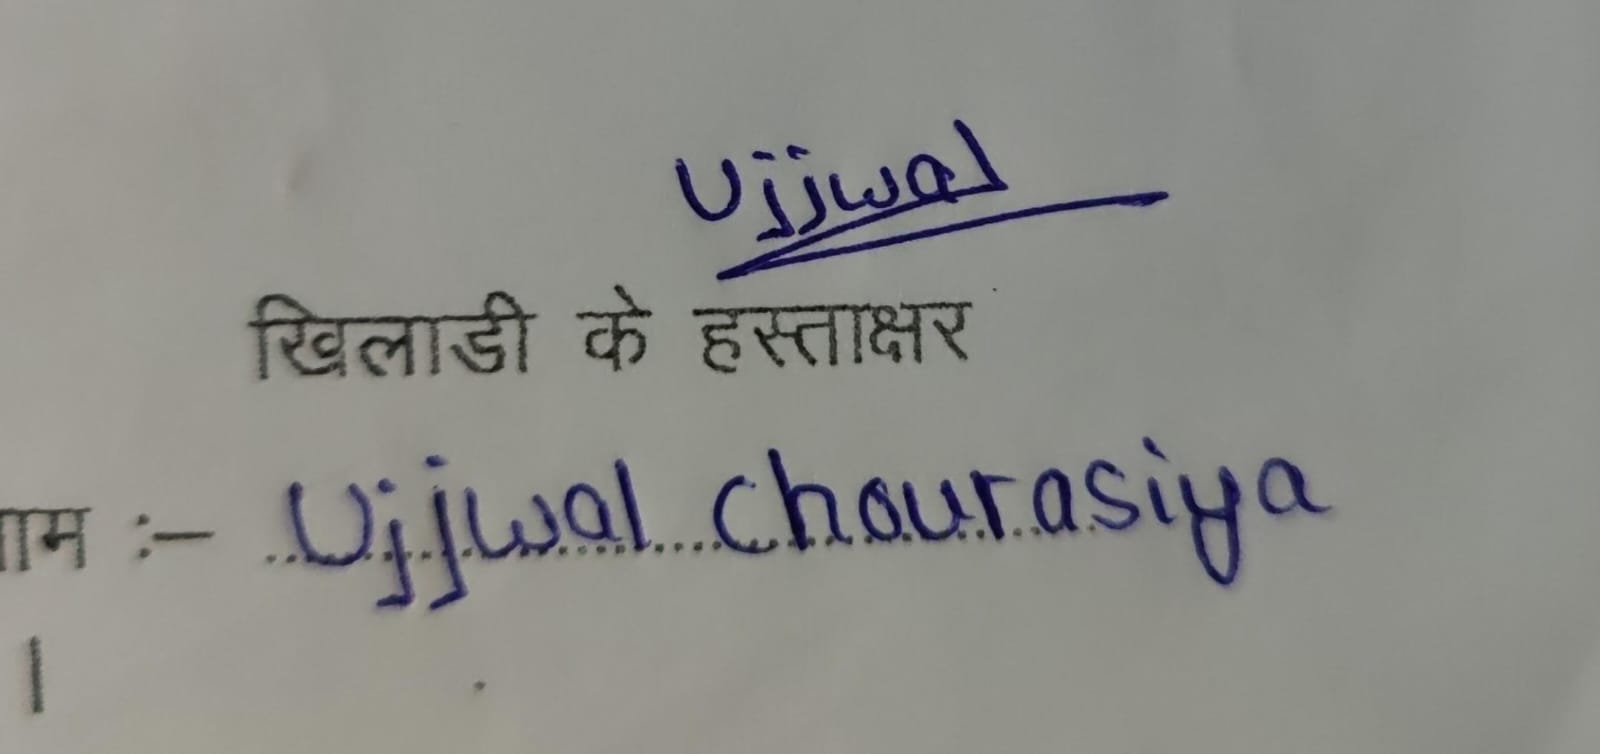 Ujjwal
खिलाडी के हस्ताक्षर
नाम :- Ujjwal chourasiya
।